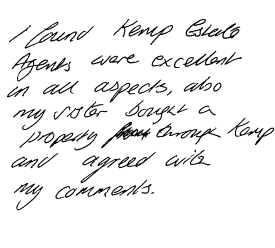 I found Kemp Estate
Agents were excellent
in all aspects, also
my sister bought a
property through Kemp
and agreed with
my comments.